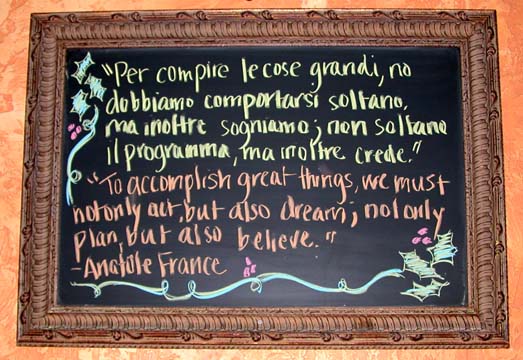 "Per compire le cose grandi, no
dobbiamo comportarsi soltano,
ma inoltre sogniamo; non soltano
il programma, ma inoltre crede."
"To accomplish great things, we must
not only act, but also dream; not only
plan, but also believe."
-Anatole France